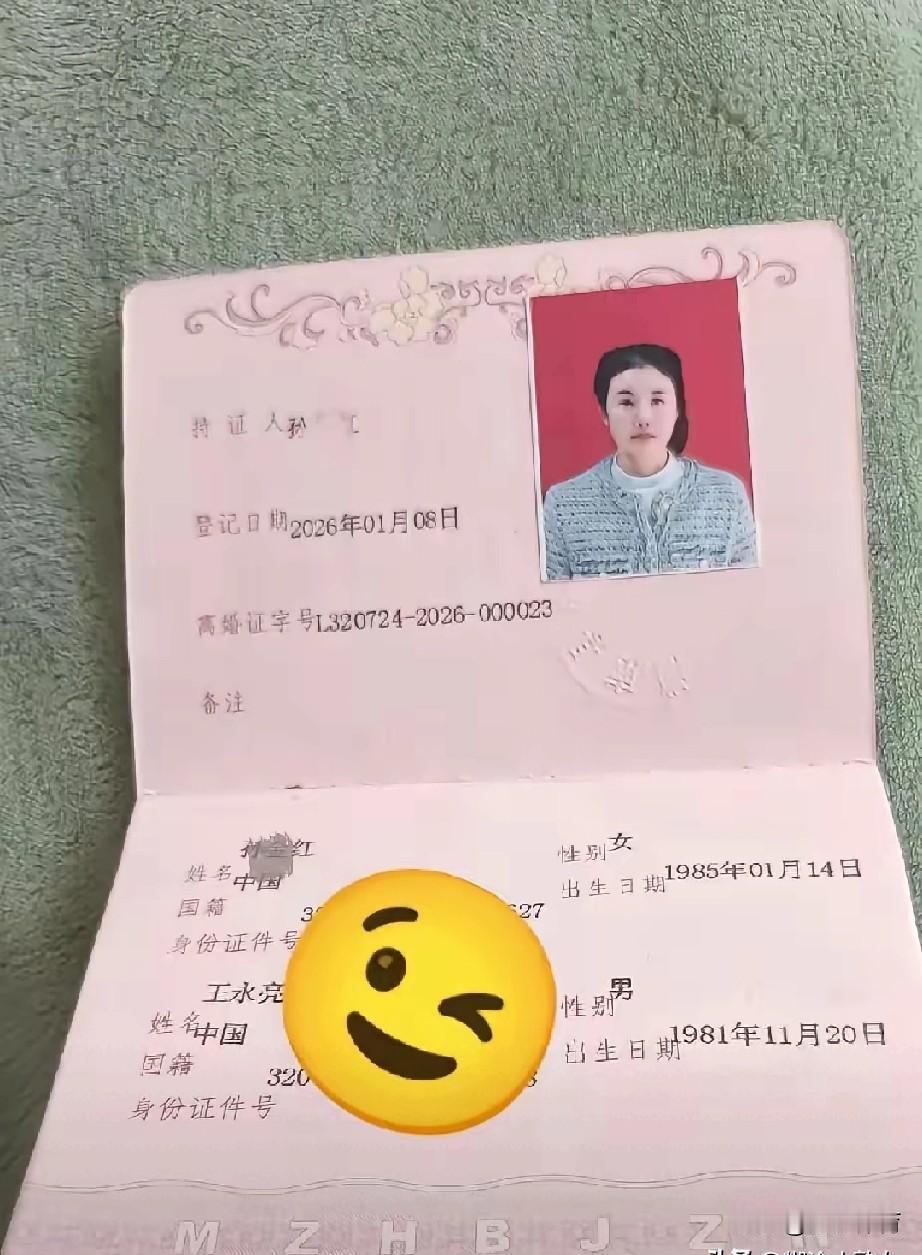 持证人孙 江
登记日期2026年01月08日
离婚证字号L320724-2026-000023
备注
姓名 孙 红 性别女
国籍 中国 出生日期1985年01月14日
身份证件号 3 627
姓名 王永亮 性别男
国籍 中国 出生日期1981年11月20日
身份证件号 320
MZHBJZ